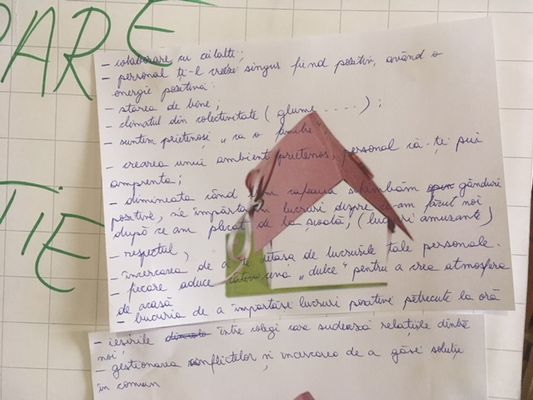 PARE
TIE
- colaborare cu ceilalți;
- personal ți-l creezi singur fiind pozitiv, având o
energie pozitivă.
- starea de bine;
- climatul din colectivitate (glume....);
- suntem prietenoși, "ca o familie";
- crearea unui ambient prietenos, personal că-ți pui
amprenta;
- dimineața când cafeaua schimbăm gânduri
pozitive, ne împărtășim lucruri despre ce-am făcut noi
după ce am plecat de la școală, (lucruri amuzante)
- respectul,
- încercarea de a te detașa de lucrurile tale personale.
- fiecare aduce câte ceva "dulce" pentru a crea atmosfera
de acasă
- bucuria de a împărtăși lucruri pozitive petrecute la oră
- ieșirile între colegi care sudează relațiile dintre
noi!
- gestionarea conflictelor și încercarea de a găsi soluții
în comun